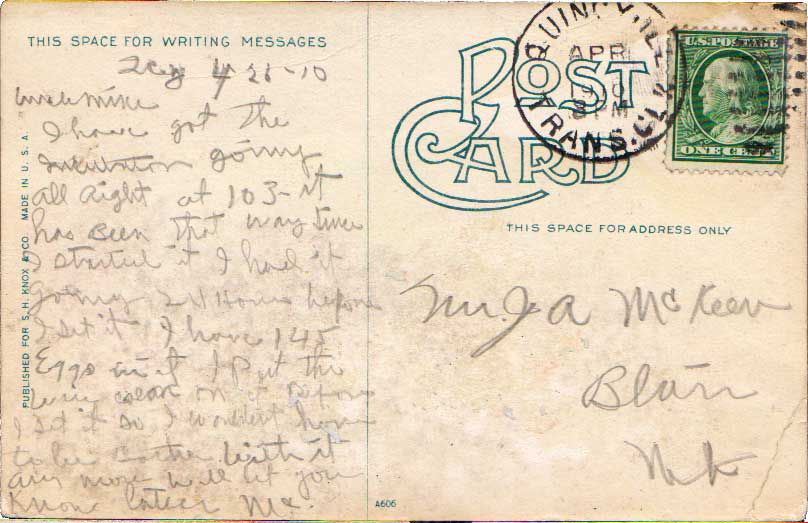 THIS SPACE FOR WRITING MESSAGES
4 26-10
Uncle Mike
I have got the
Incubator going
all right at 103- it
has been that way since
I started it I had it
going 24 Hours before
I set it I have 145
Eggs in it I Put the
on it Before
I set it so I wouldent have
to be with it
any more will let you
Know later Mc.
PUBLISHED FOR S.H. KNOX & CO. MADE IN U.S.A.
POST
CARD
QUINCY, ILL
APR
1910
8 PM
TRANS. CLK
U.S. POSTAGE
ONE CENT
THIS SPACE FOR ADDRESS ONLY
Mr. J A McKeen
Blair
Nek
A606